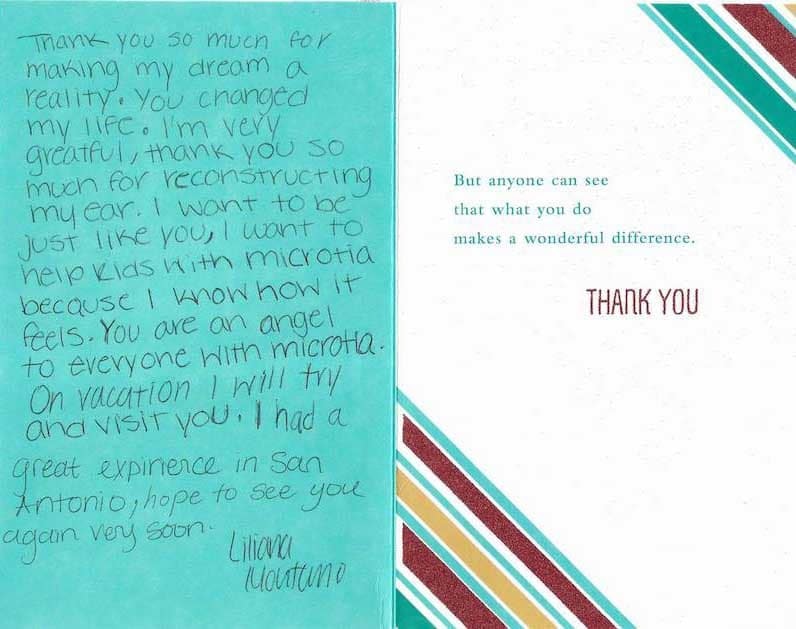 Thank you so much for
making my dream a
reality. You changed
my life. I'm very
greatful, thank you so
much for reconstructing
my ear. I want to be
just like you, I want to
help kids with microtia
because I know how it
feels. You are an angel
to everyone with microtia.
On vacation I will try
and visit you. I had a
great expirience in San
Antonio, hope to see you
again very soon.
Liliana
But anyone can see
that what you do
makes a wonderful difference.
THANK YOU